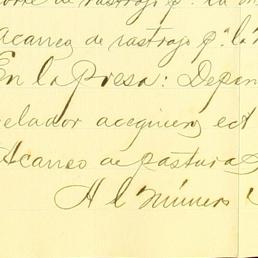 de rastrojo pª. la
acarreo de rastrojo pª. la
En la Presa: Depen
velador acequiero, ect
Acarreo de pastura
Al número